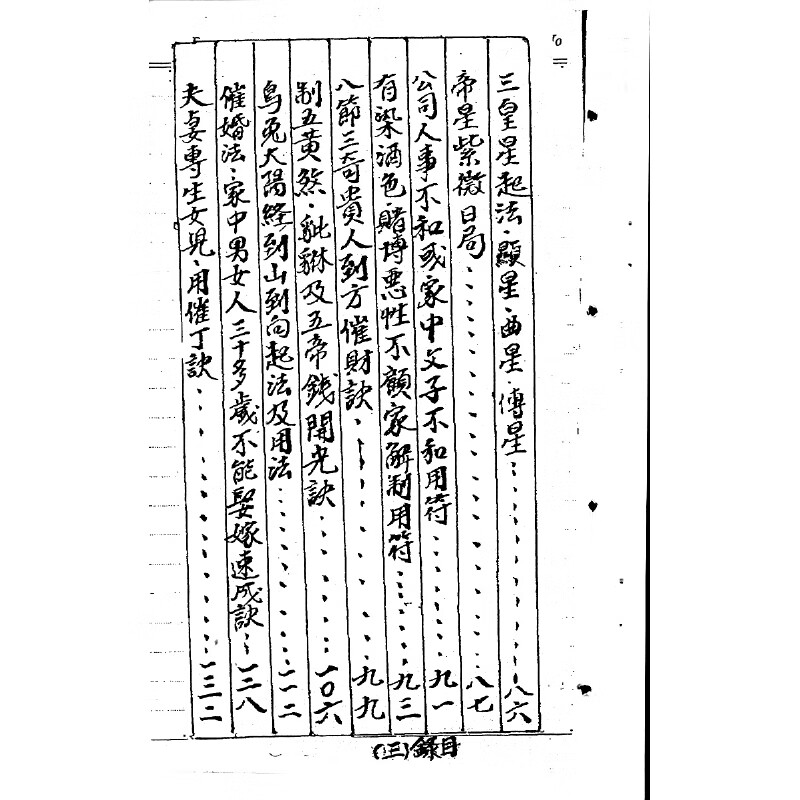 三皇星起法、顯星、曲星、傅星…………八六
帝星紫微日局…………八七
公司人事不和或家中父子不和用符…………九一
有染酒色賭博惡性不顧家解制用符…………九三
八節三奇貴人到方催財訣…………九九
制五黃煞、貔貅及五帝錢開光訣…………一〇六
烏兔太陽經到山到向起法及用法…………一一二
催婚法、家中男女人三十多歲不能娶嫁速成訣…一二八
夫妻專生女兒、用催丁訣…………一三二
目錄(三)